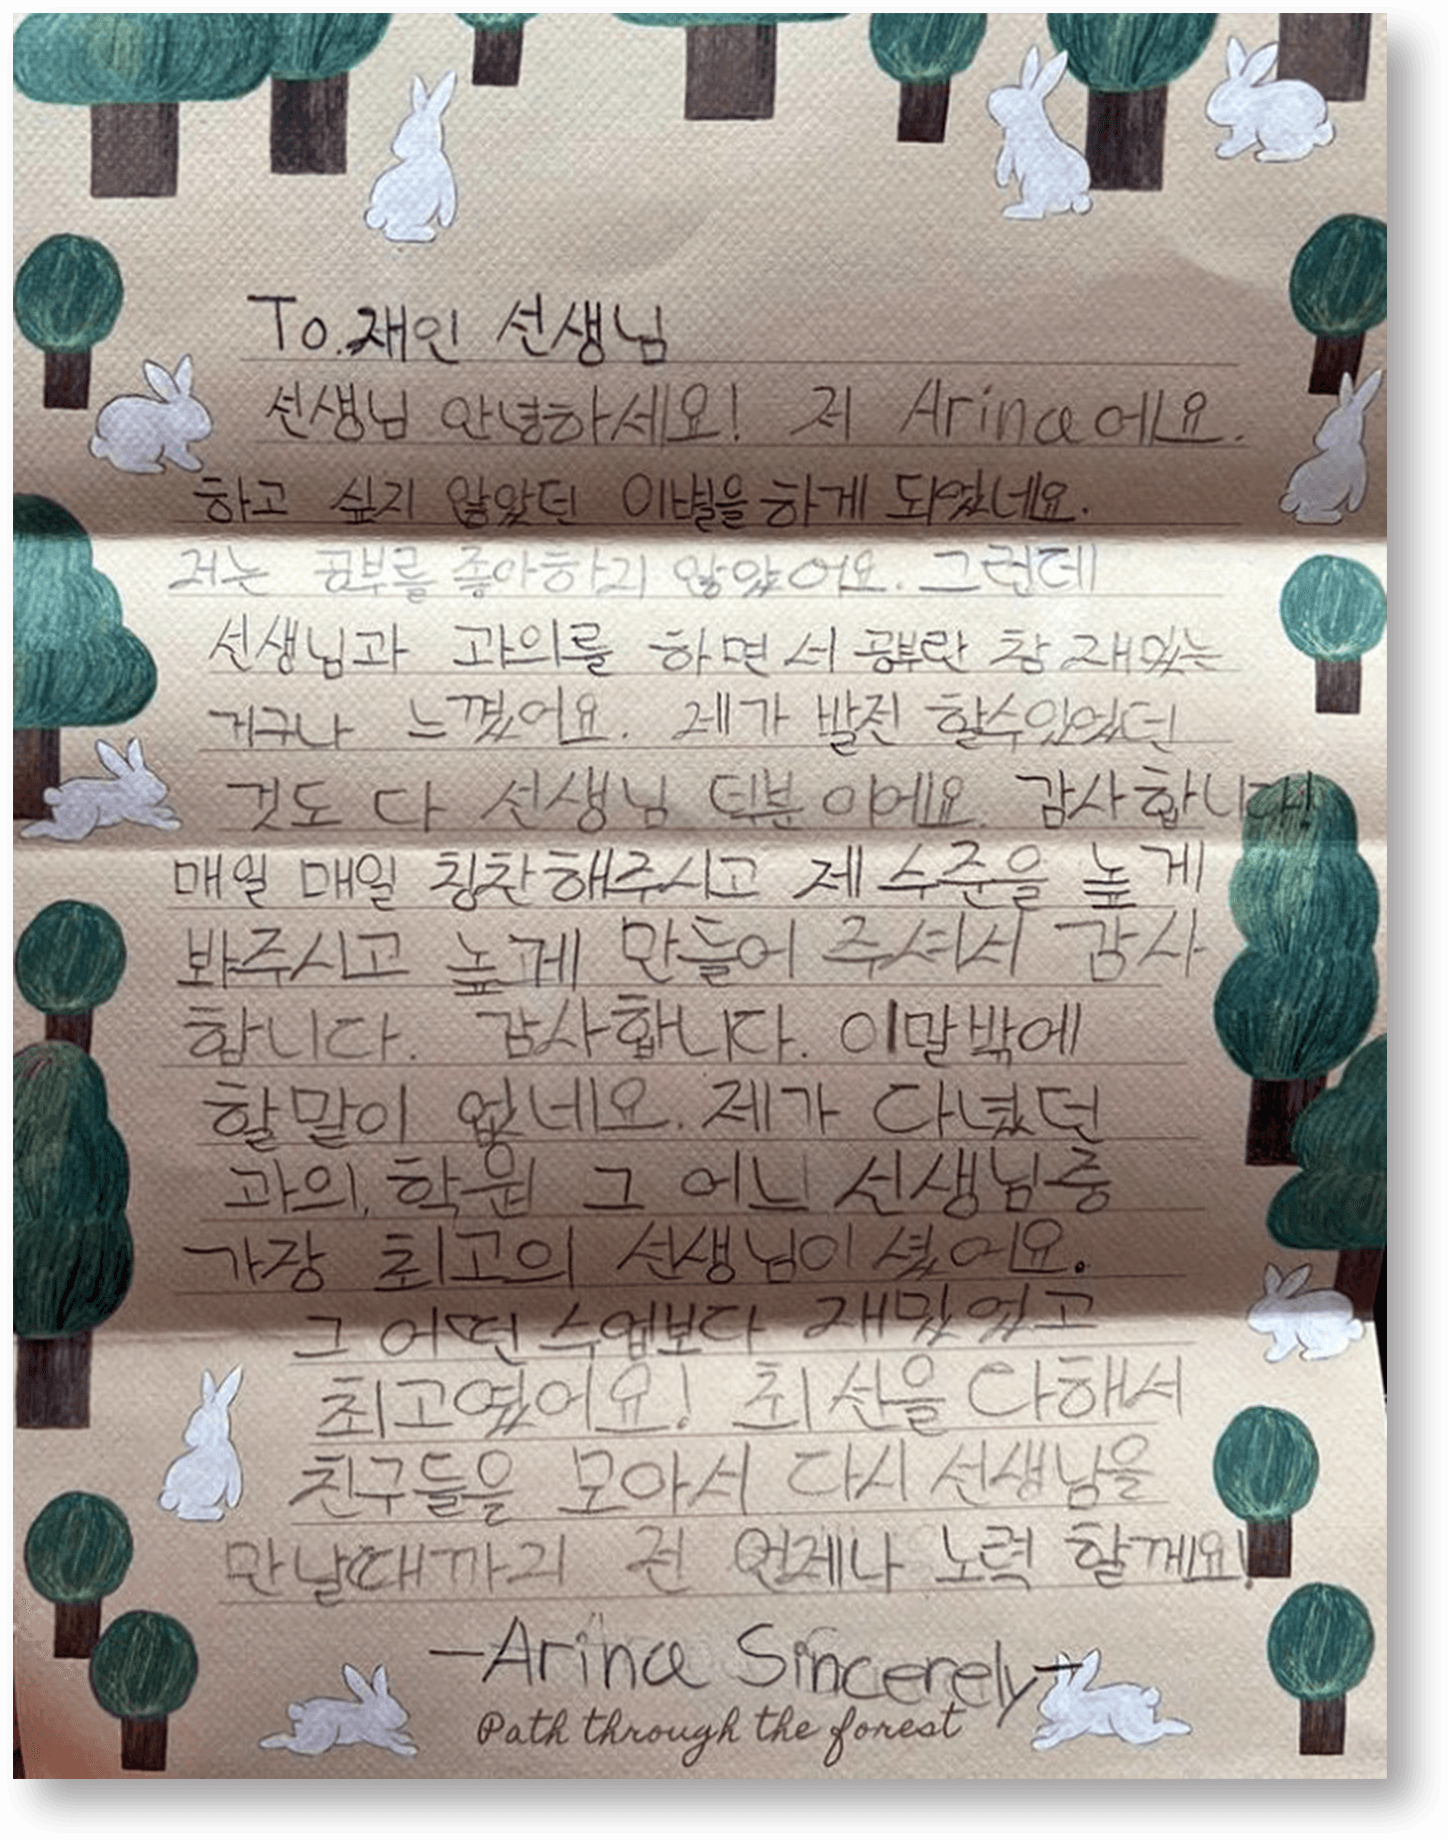 To. 재인 선생님
선생님 안녕하세요! 저 Arina에요.
하고 싶지 않았던 이별을 하게 되었네요.
저는 공부를 좋아하지 않았어요. 그런데
선생님과 과외를 하면서 공부란 참 재밌는
거구나 느꼈어요. 제가 발전 할수있었던
것도 다 선생님 덕분 이에요. 감사합니다!
매일 매일 칭찬해주시고 제 수준을 높게
봐주시고 높게 만들어 주셔서 감사
합니다. 감사합니다. 이말밖에
할말이 없네요. 제가 다녔던
과외, 학원 그 어느 선생님중
가장 최고의 선생님이셨어요.
그 어떤 수업보다 재밌었고
최고였어요! 최선을 다해서
친구들을 모아서 다시 선생님을
만날때까지 전 언제나 노력 할께요!
-Arina Sincerely-
Path through the forest